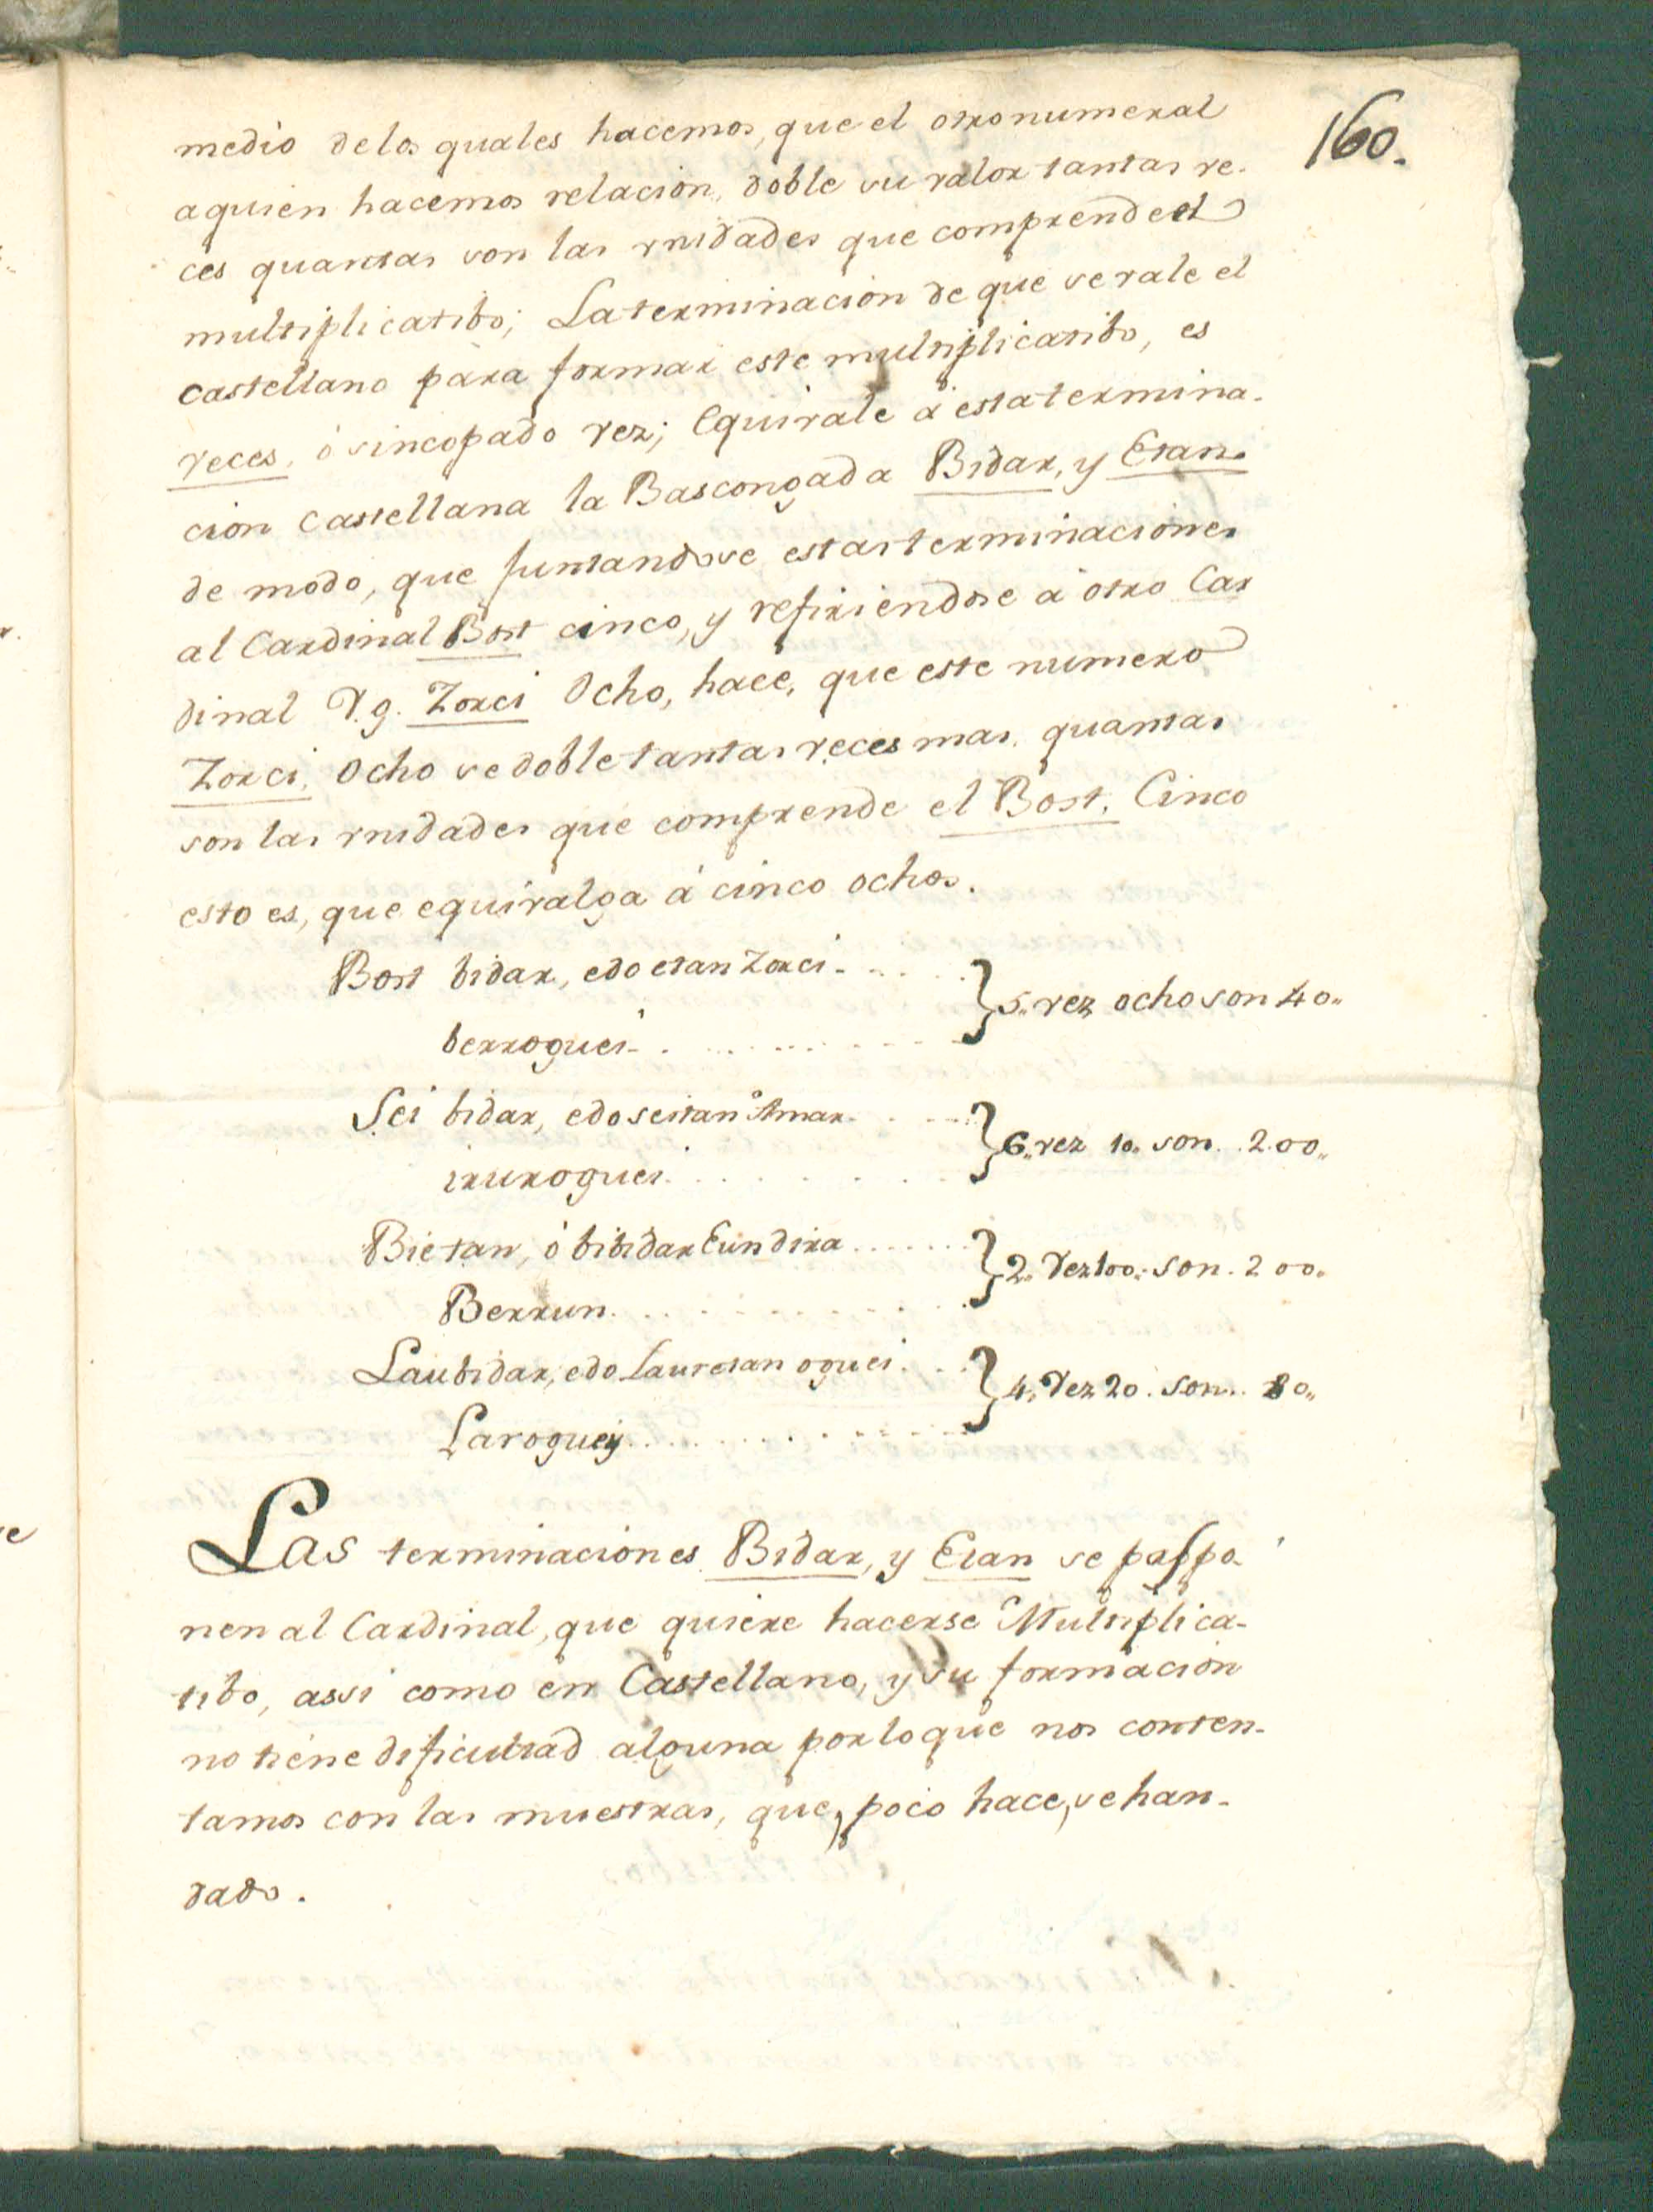 160.
medio de los quales hacemos, que el otro numeral
a quien hacemos relacion, doble su valor tantas ve-
ces quantas son las vnidades que comprende el
multiplicatibo; La terminacion de que se vale el
castellano para formar este multiplicatibo, es
veces, ó sincopado vez; Equivale á esta termina-
cion castellana la Bascongada Bidar, y Etan.
de modo, que juntandose estas terminaciones
al Cardinal Bost cinco, y refiriendose á otro Car
dinal V.g. Zorci Ocho, hace, que este numero
Zorci, Ocho se doble tantas veces mas, quantas
son las vnidades que comprende el Bost, Cinco
esto es, que equivalga á cinco ochos.
Bost bidar, edo etan Zorci - . . . . } 5,, vez ocho son 40,,
berroguei - . . . . . . . . .
Sei bidar, edo seitan Amar. . . . } 6,, vez 10,, son . . 200,,
iruroguei. . . . . . . .
Bietan, ó bi bidar Eun dira . . . . . . . } 2,, Vez 100,, son . 200,,
Berrun. . . . . . . . . .
Lau bidar, edo Lauretan oguei . . . } 4,, Vez 20 . son . . 80,,
Laroguey . . . . . . . . .
Las terminaciones Bidar, y Etan se pospo-
nen al Cardinal, que quiere hacerse Multiplica-
tibo, assi como en Castellano, y su formacion
no tiene dificultad alguna por lo que nos conten-
tamos con las muestras, que, poco hace, se han-
dado.